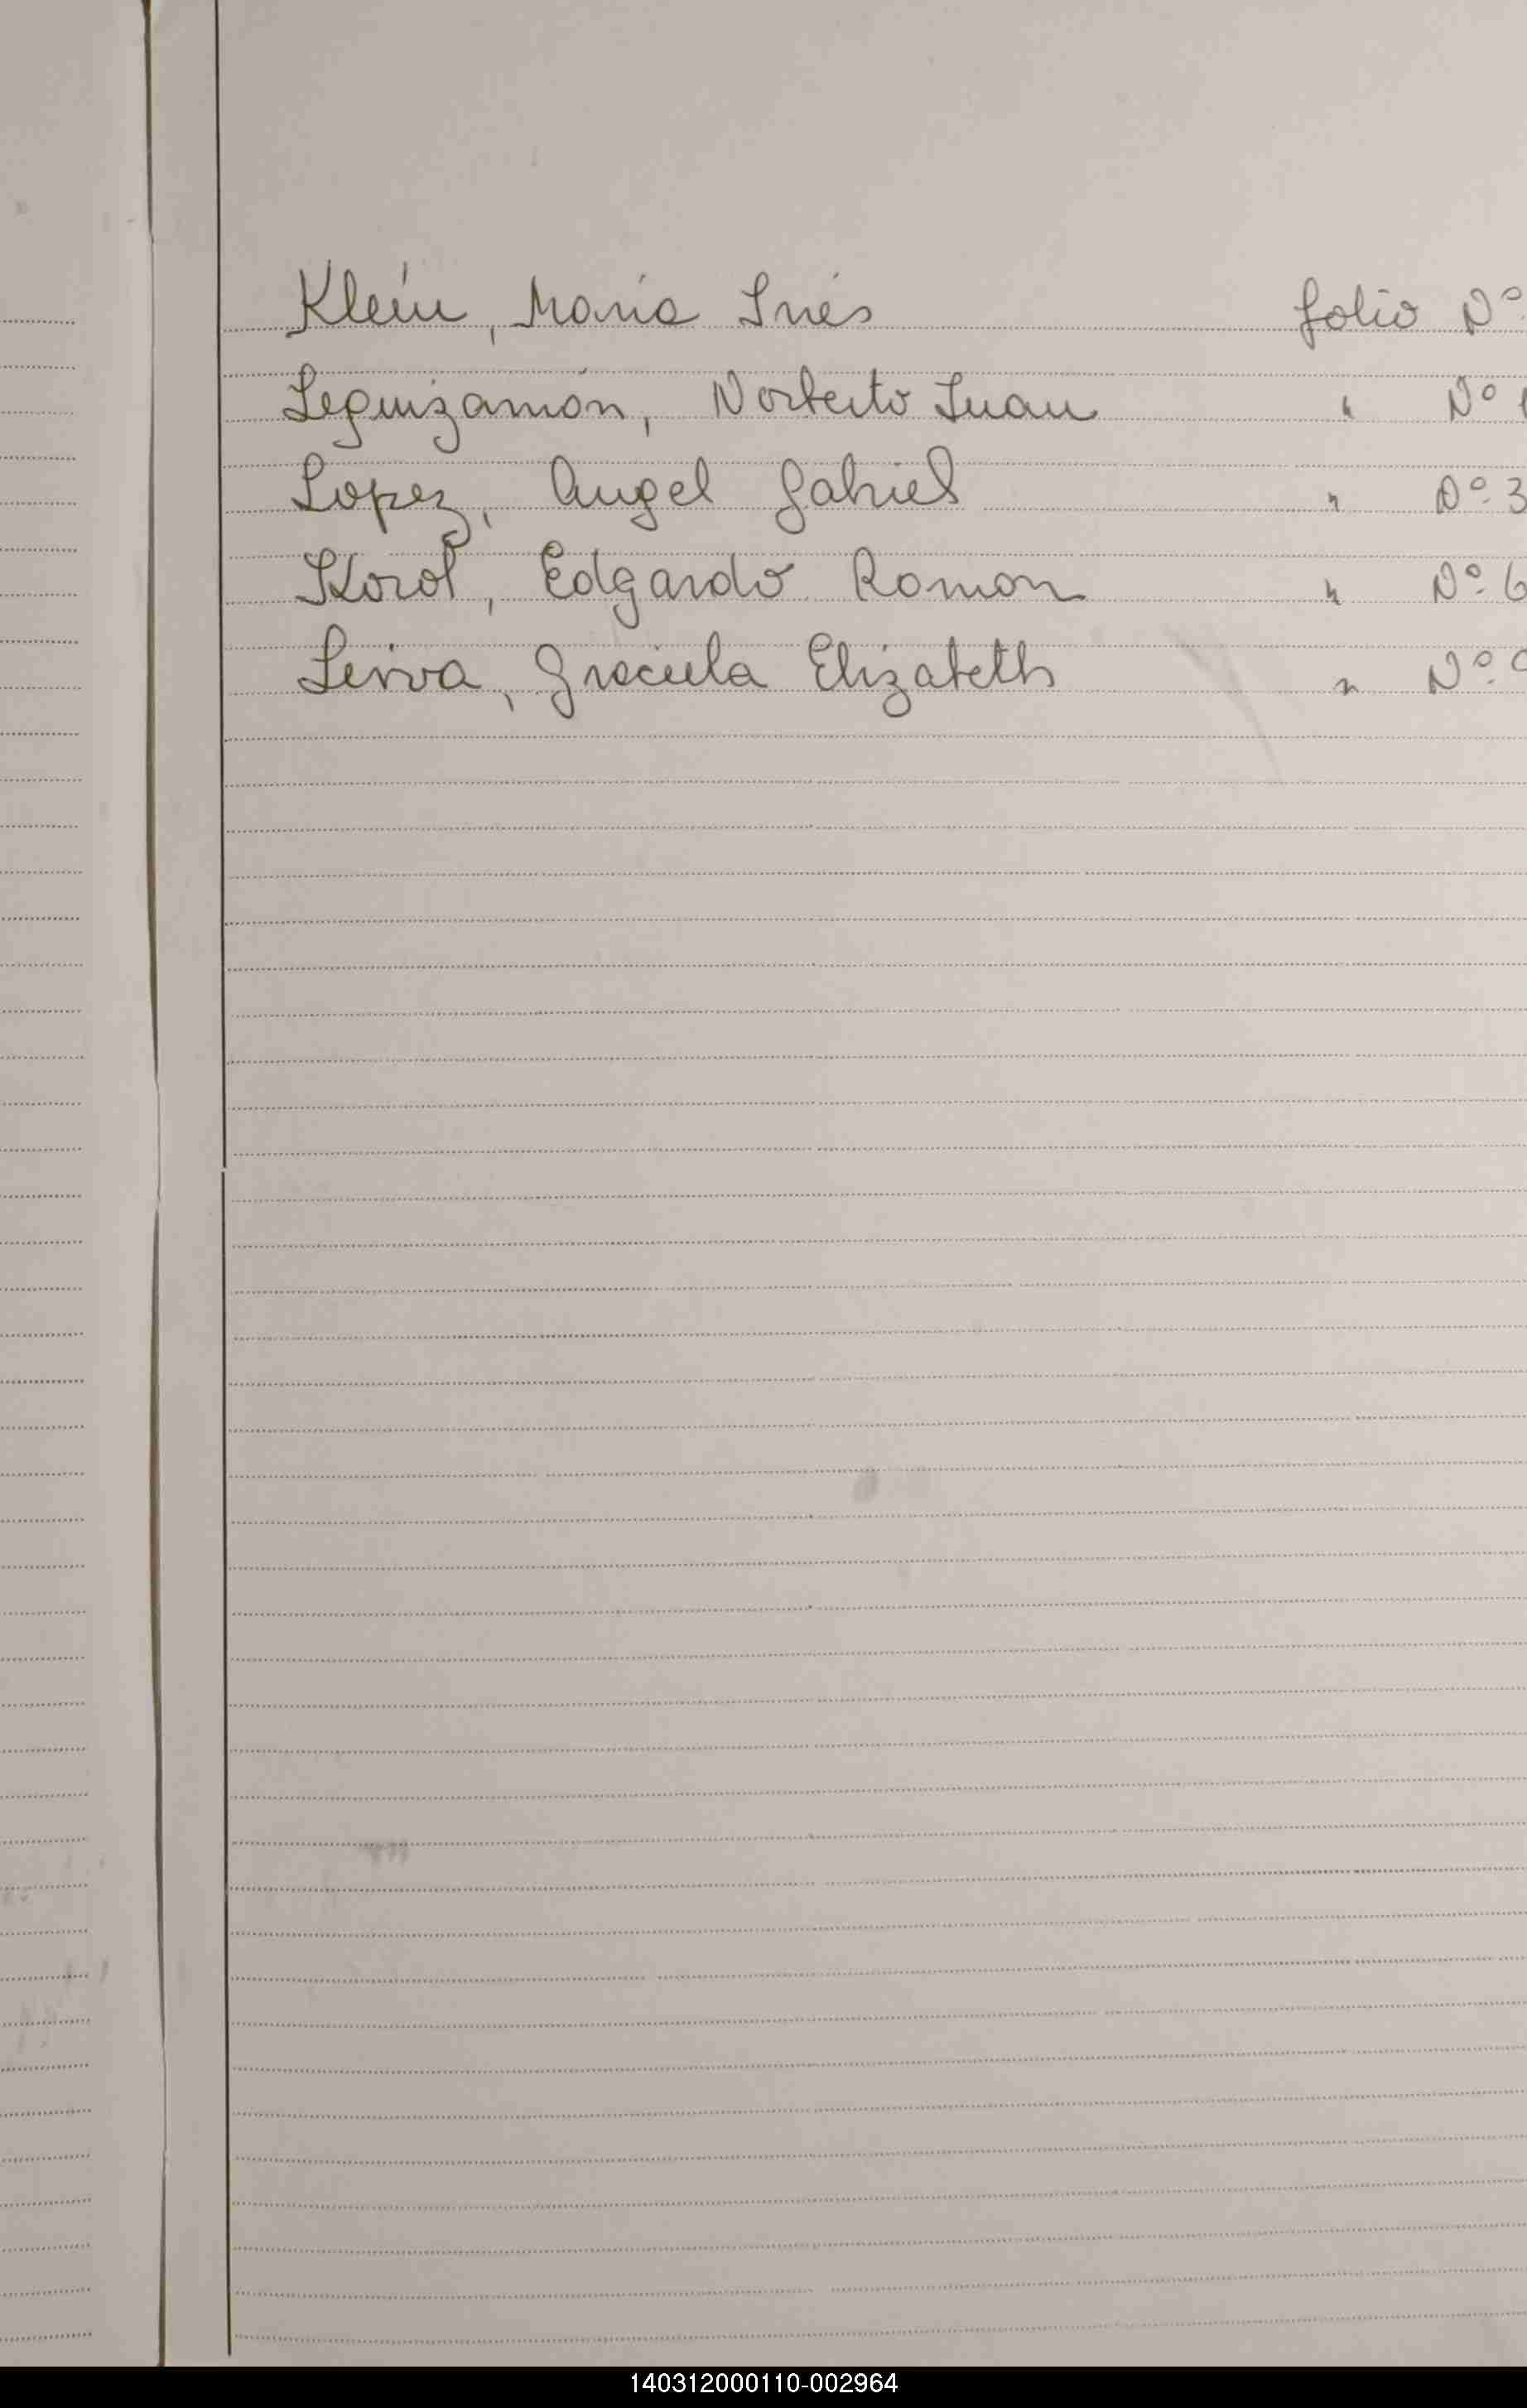 Klein, María Inés folio Nº
Leguizamón, Norberto Juan " Nº 1
Lopez, Angel Gabriel " Nº 3
Korol, Edgardo Ramon " Nº 6
Leiva, Graciela Elizabeth " Nº
140312000110-002964